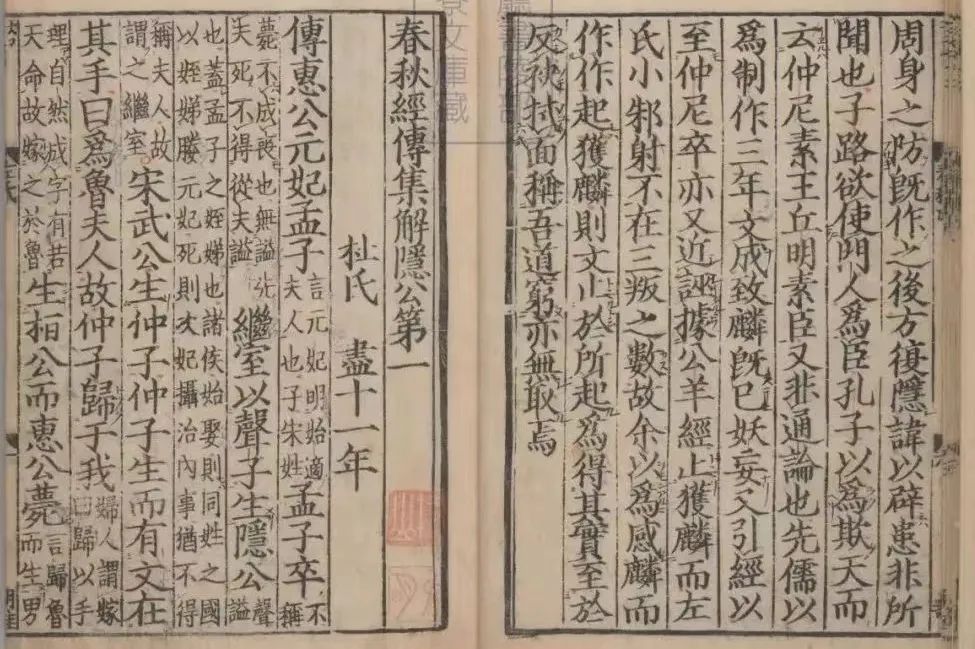 周身之防旣作之後方復隱諱以辟患非所
聞也子路欲使門人爲臣孔子以爲欺天而
云仲尼素王丘明素臣又非通論也先儒以
爲制作三年文成致麟旣已妖妄又引經以
至仲尼卒亦又近誣據公羊經止獲麟而左
氏小邾射不在三叛之數故余以爲感麟而
作作起獲麟則文止於所起爲得其實至於
反袂拭面稱吾道窮亦無取焉
春秋經傳集解隱公第一
杜氏 盡十一年
傳惠公元妃孟子言元妃明始適夫人也子宋姓孟子卒不稱
薨不成喪也無謚先夫死不得從夫謚繼室以聲子生隱公聲謚
也蓋孟子之姪娣也諸侯始娶則同姓之國以姪娣媵元妃死則次妃攝治內事猶不得
稱夫人故謂之繼室宋武公生仲子仲子生而有文在
其手曰爲魯夫人故仲子歸于我婦人謂嫁曰歸以手
理自然成字有若天命故嫁之於魯生桓公而惠公薨言歸魯而生男